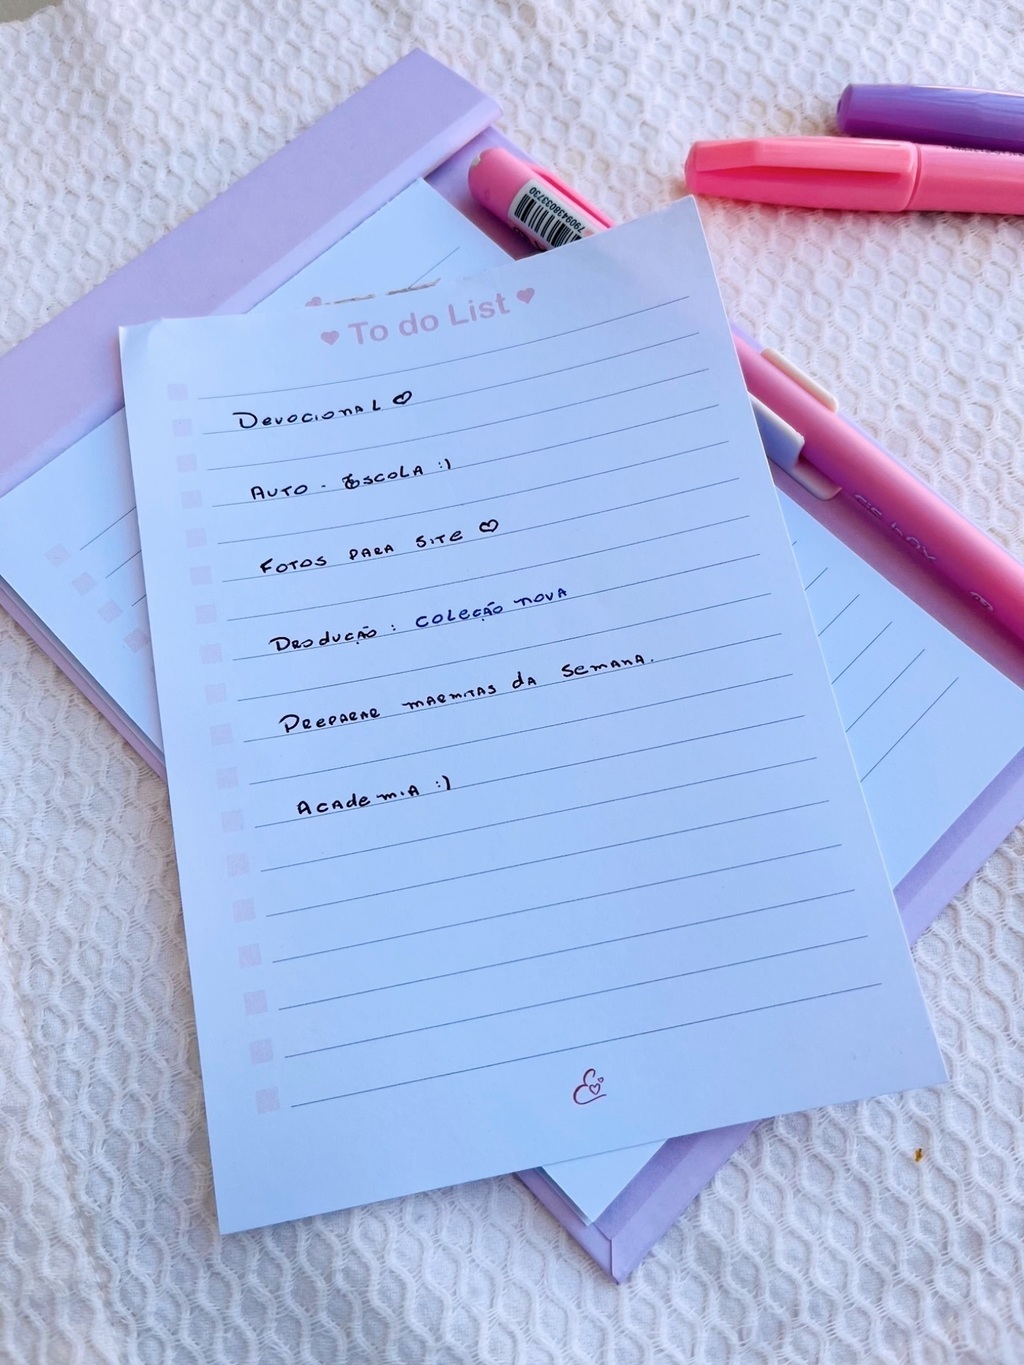 7909438033730
♥ To do List ♥
Devocional ♡
Auto - Escola :)
Fotos para site ♡
Produção : coleção nova
Preparar marmitas da semana.
Academia :)